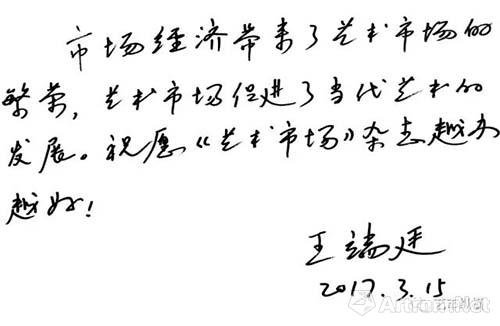 市场经济带来了艺术市场的
繁荣，艺术市场促进了当代艺术的
发展。祝愿《艺术市场》杂志越办
越好！
王端廷
2017.3.15